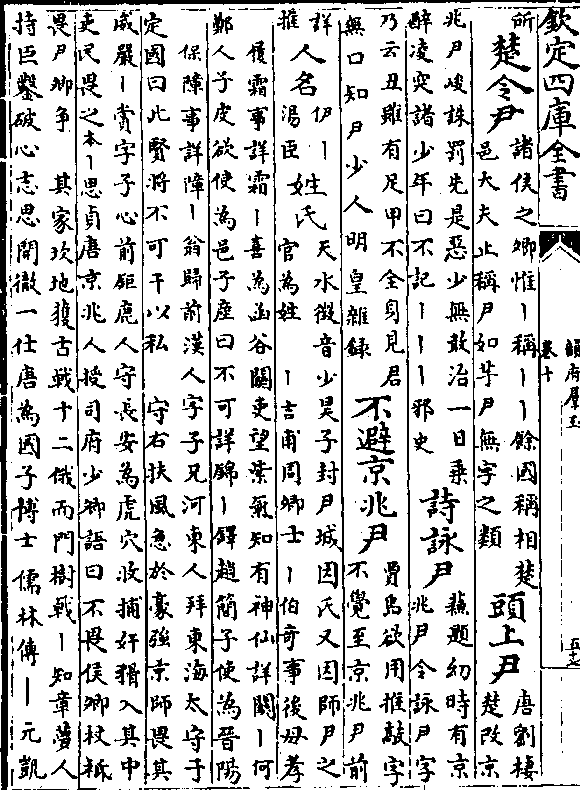 欽定四庫全書
韻府羣玉
卷十
所
楚令尹
諸侯之卿惟丨稱丨丨餘國稱相楚
邑大夫止稱尹如芋尹無宇之類
頭上尹
唐劉棲
楚改京
兆尹峻誅罰先是惡少無敢治一日乗
醉凌突諸少年曰不記丨丨丨邪史
詩詠尹
蘓題幼時有京
兆尹令詠尹字
乃云丑雖有足甲不全身見君
無口知尹少人明皇雜録
不避京兆尹
賈島欲用推敲字
不覺至京兆尹前
詳
推
人名
伊丨
湯臣
姓氏
天水徴音少昊子封尹城因氏又因師尹之
官為姓 丨吉甫周卿士丨伯奇事後母孝
履霜事詳霜丨喜為函谷關吏望紫氣知有神仙詳關丨何
鄭人子皮欲使為邑子産曰不可詳錦丨鐸趙簡子使為晉陽
保障事詳障丨翁歸前漢人字子兄河東人拜東海太守于
定國曰此賢將不可干以私 守右扶風急於豪強京師畏其
威嚴丨賞字子心前鉅鹿人守長安為虎穴收捕奸猾入其中
吏民畏之本丨思貞唐京兆人授司府少卿語曰不畏侯卿杖祗
畏尹卿争 其家坎地獲古戟十二俄而門樹戟丨知章夢人
持巨鑿破心志思開徹一仕唐為國子博士 儒林傳丨元凱